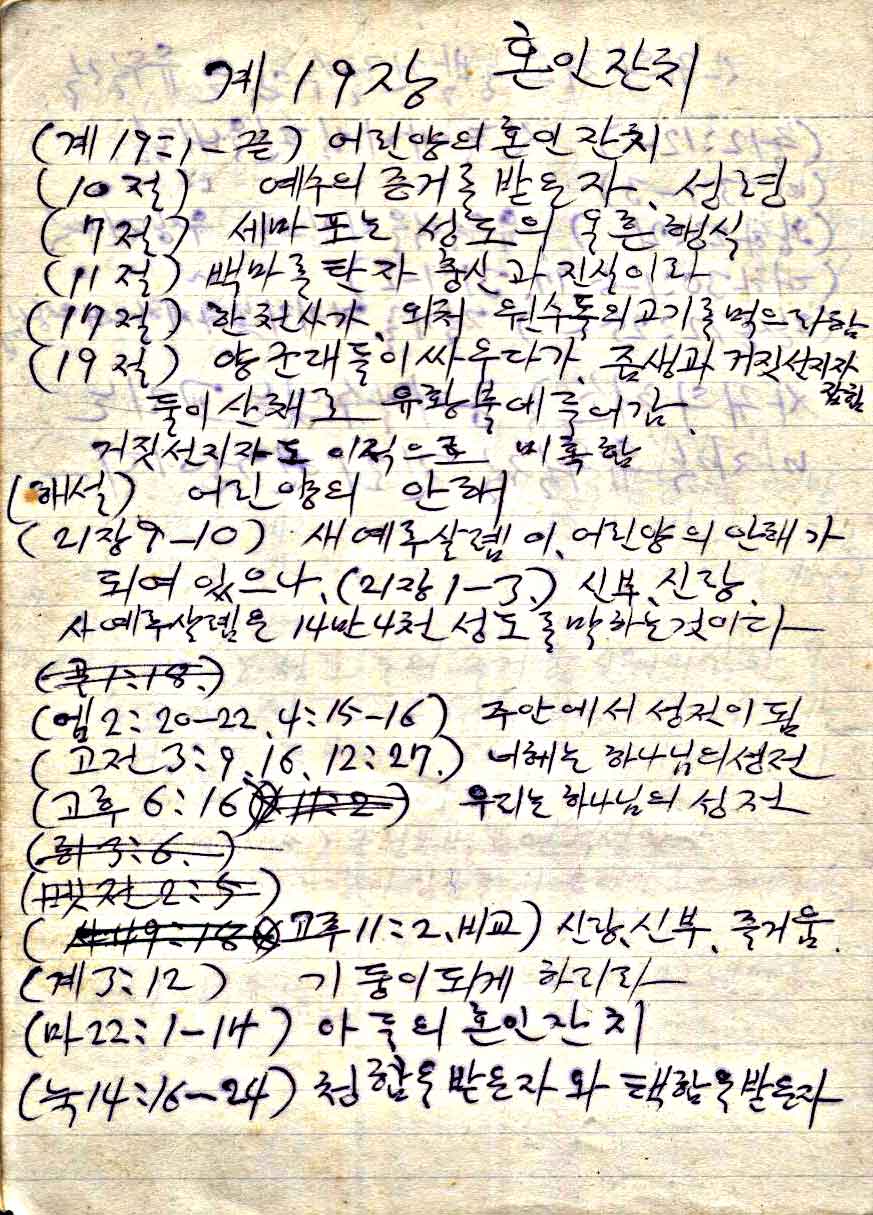 계 19장 혼인잔치
(계 19:1-끝) 어린양의 혼인잔치
(10절) 예수의 증거를 받은자, 성령
(7절) 세마포는 성도의 옳은 행실
(11절) 백마를 탄자 충신과 진실이라
(17절) 한천사가, 외처 원수들의고기를먹으라함
(19절) 양군대들이싸우다가, 즘생과 거짓선지자
잡힘
둘이산채로 유황불에들어감,
거짓선지자도 이적으로 미혹함
(해설) 어린양의 안해
(21장9-10) 새예루살렘이, 어린양의안해가
되여있으나, (21장1-3,) 신부, 신랑,
사예루살렘은 14만4천 성도를말하는것이다
(골1:18,)
(엡2:20-22, 4:15-16) 주안에서성전이됨
(고전3:9, 16, 12:27,) 너헤는 하나님의성전
(고후6:16 11:2) 우리는하나님의성전
(히3:6,)
(벳전2:5)
( 고후11:2, 비교) 신랑,신부, 즐거움,
(계3:12) 기둥이되게 하리라
(마22:1-14) 아들의혼인잔치
(눅14:16-24) 청함을받은자와 택함을받은자